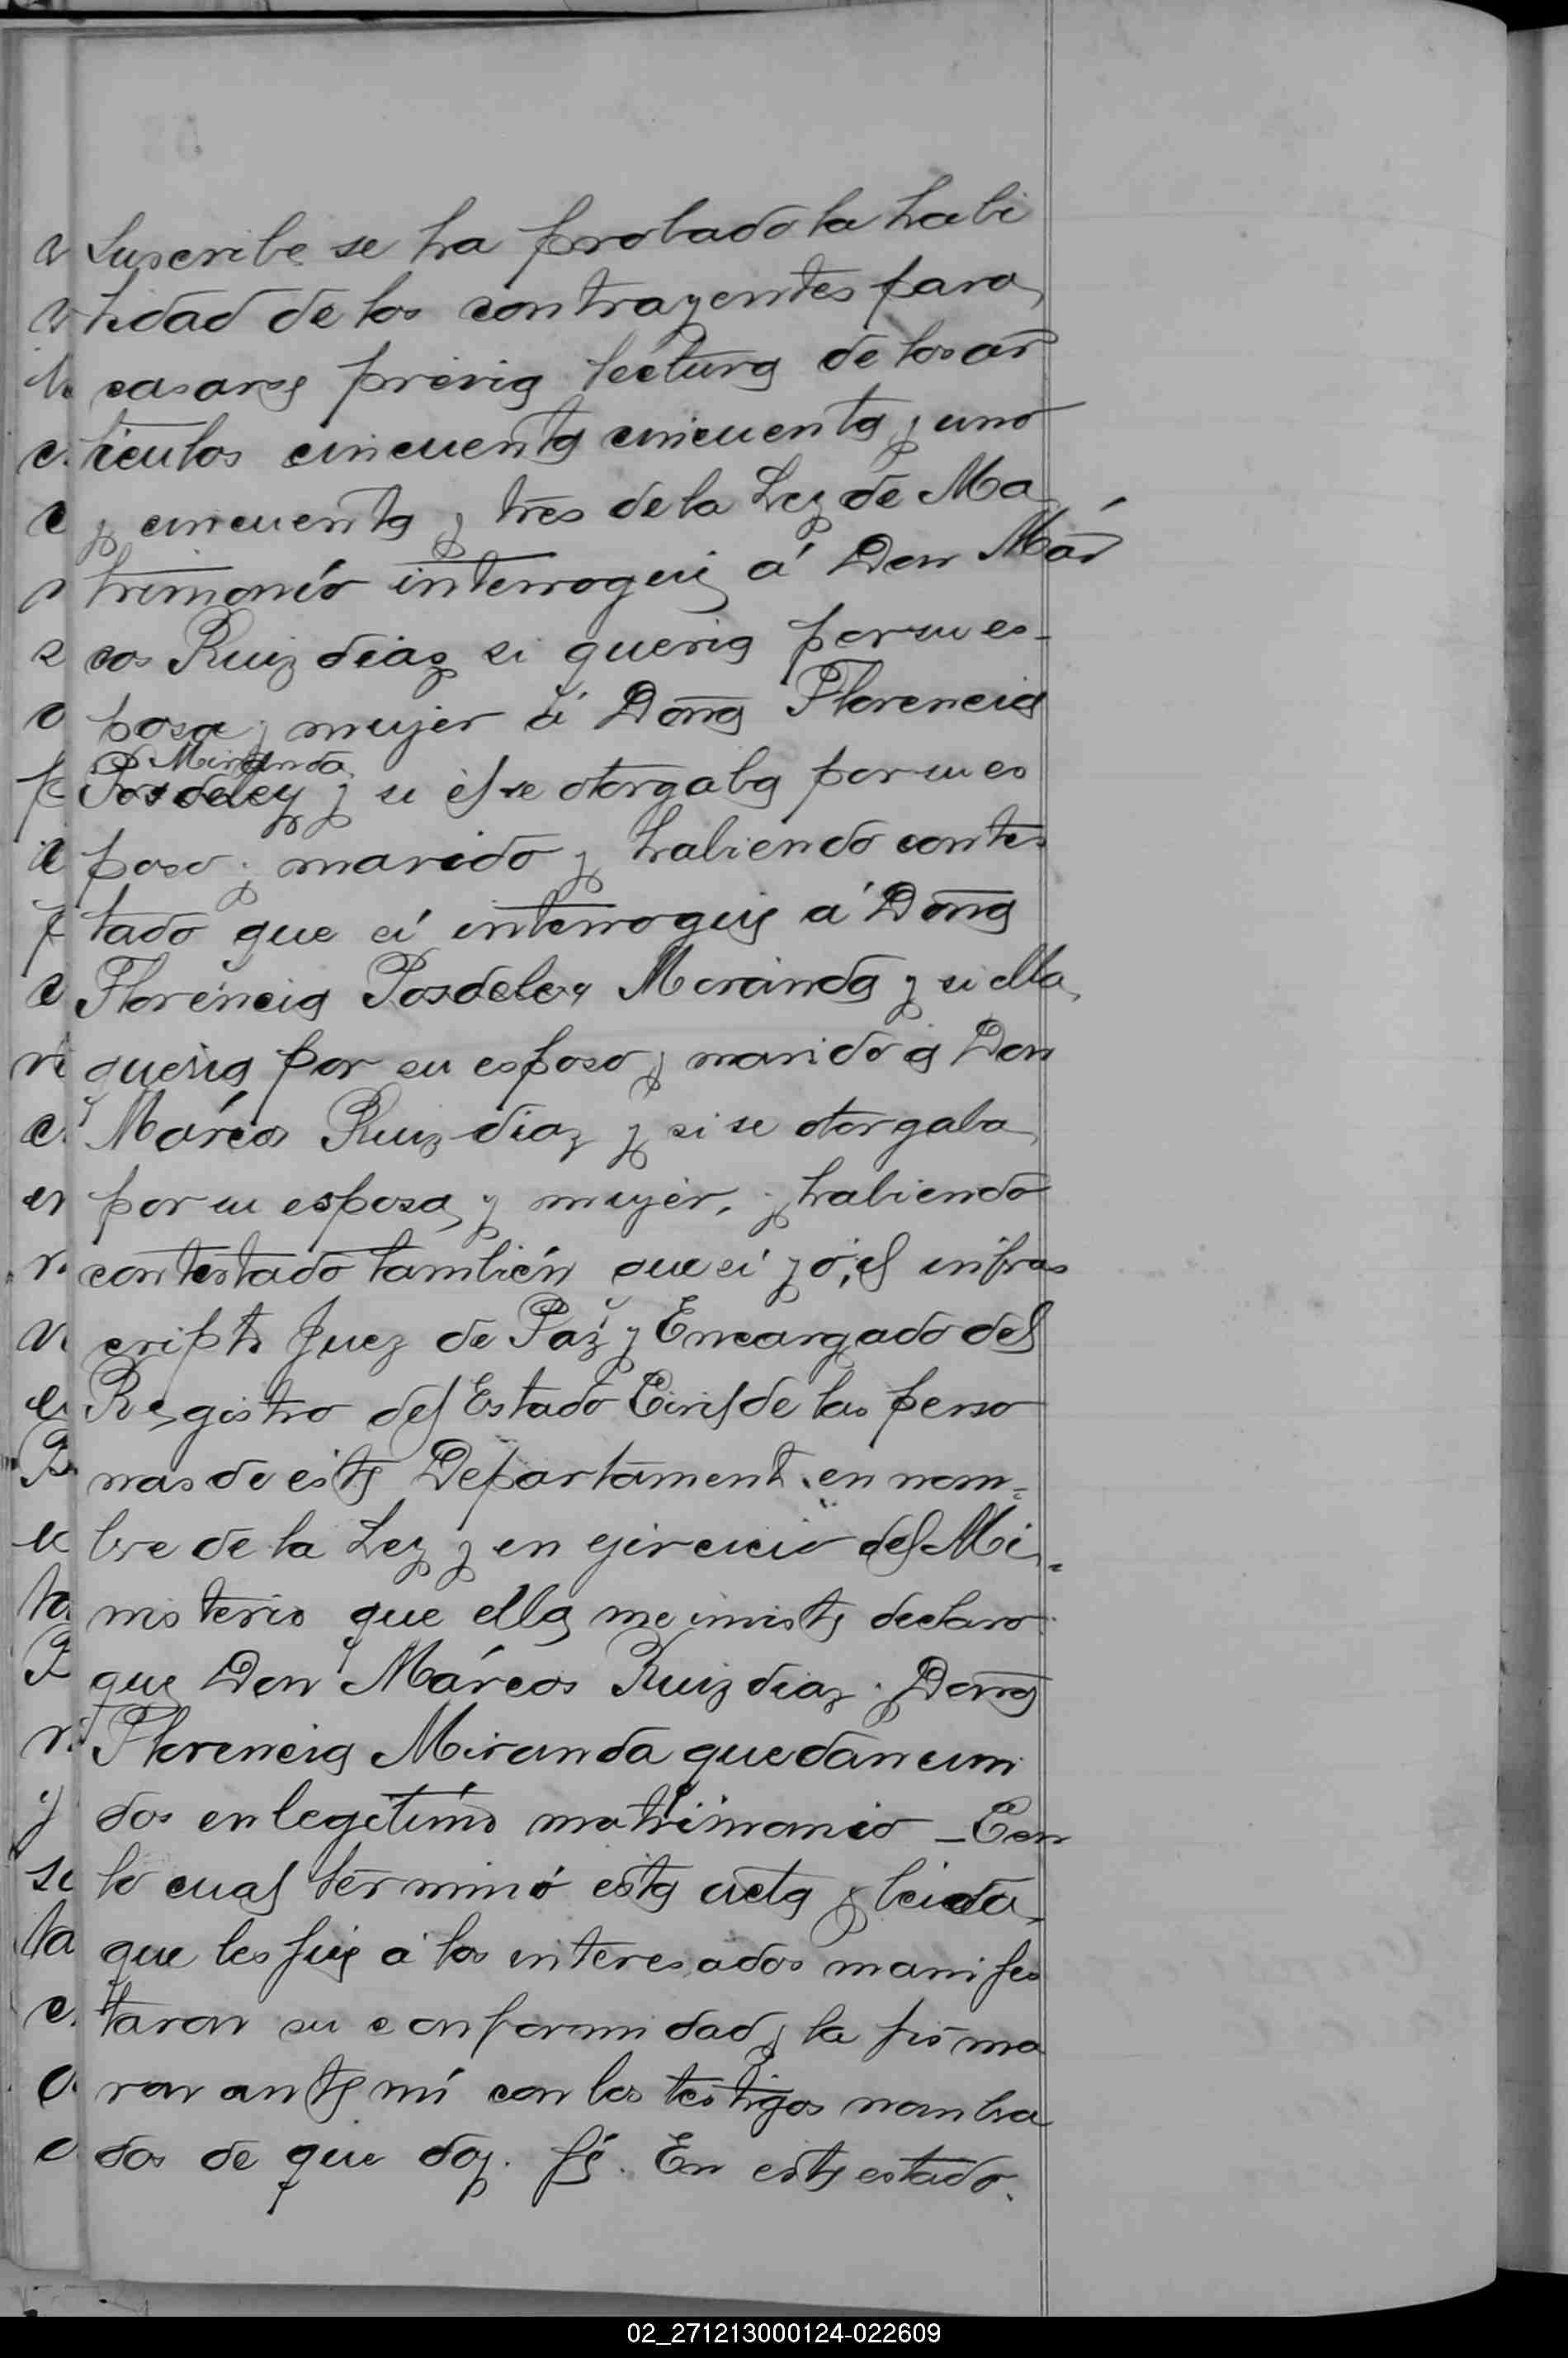 Suscribe se ha probado la habi
lidad de los contrayentes para
casarse prévia lectura de los ar
tículos cincuenta cincuenta y uno
y cincuenta y tres de la Ley de Ma
trimonio interrogué á Don Már
cos Ruiz diaz si queria por su es-
posa y mujer á Doña Florencia
Miranda
Posdeley y si él se otorgaba por su es
poso y marido y habiendo contes
tado que sí interrogué á Doña
Florencia Posdeley Miranda y si ella
queria por su esposo y marido a Don
Márcos Ruiz diaz y si se otorgaba
por su esposa y mujer, y habiendo
contestado también que sí yó, el infras
cripto Juez de Paz y Encargado del
Registro del Estado Civil de las perso
nas de este Departament. en nom=
bre de la Ley y en ejercicio del Mi=
nisterio que ella me inviste declaro
que Don Márcos Ruiz diaz y Doña
Florencia Miranda quedan uni
dos en legítimo matrimonio _ Con
lo cual terminó esta acta y leida
que les fué a los interesados manifes
taron su conformidad y la firma
ron ante mí con los testigos nombra
dos de que doy fé. En este estado.
02_271213000124-022609